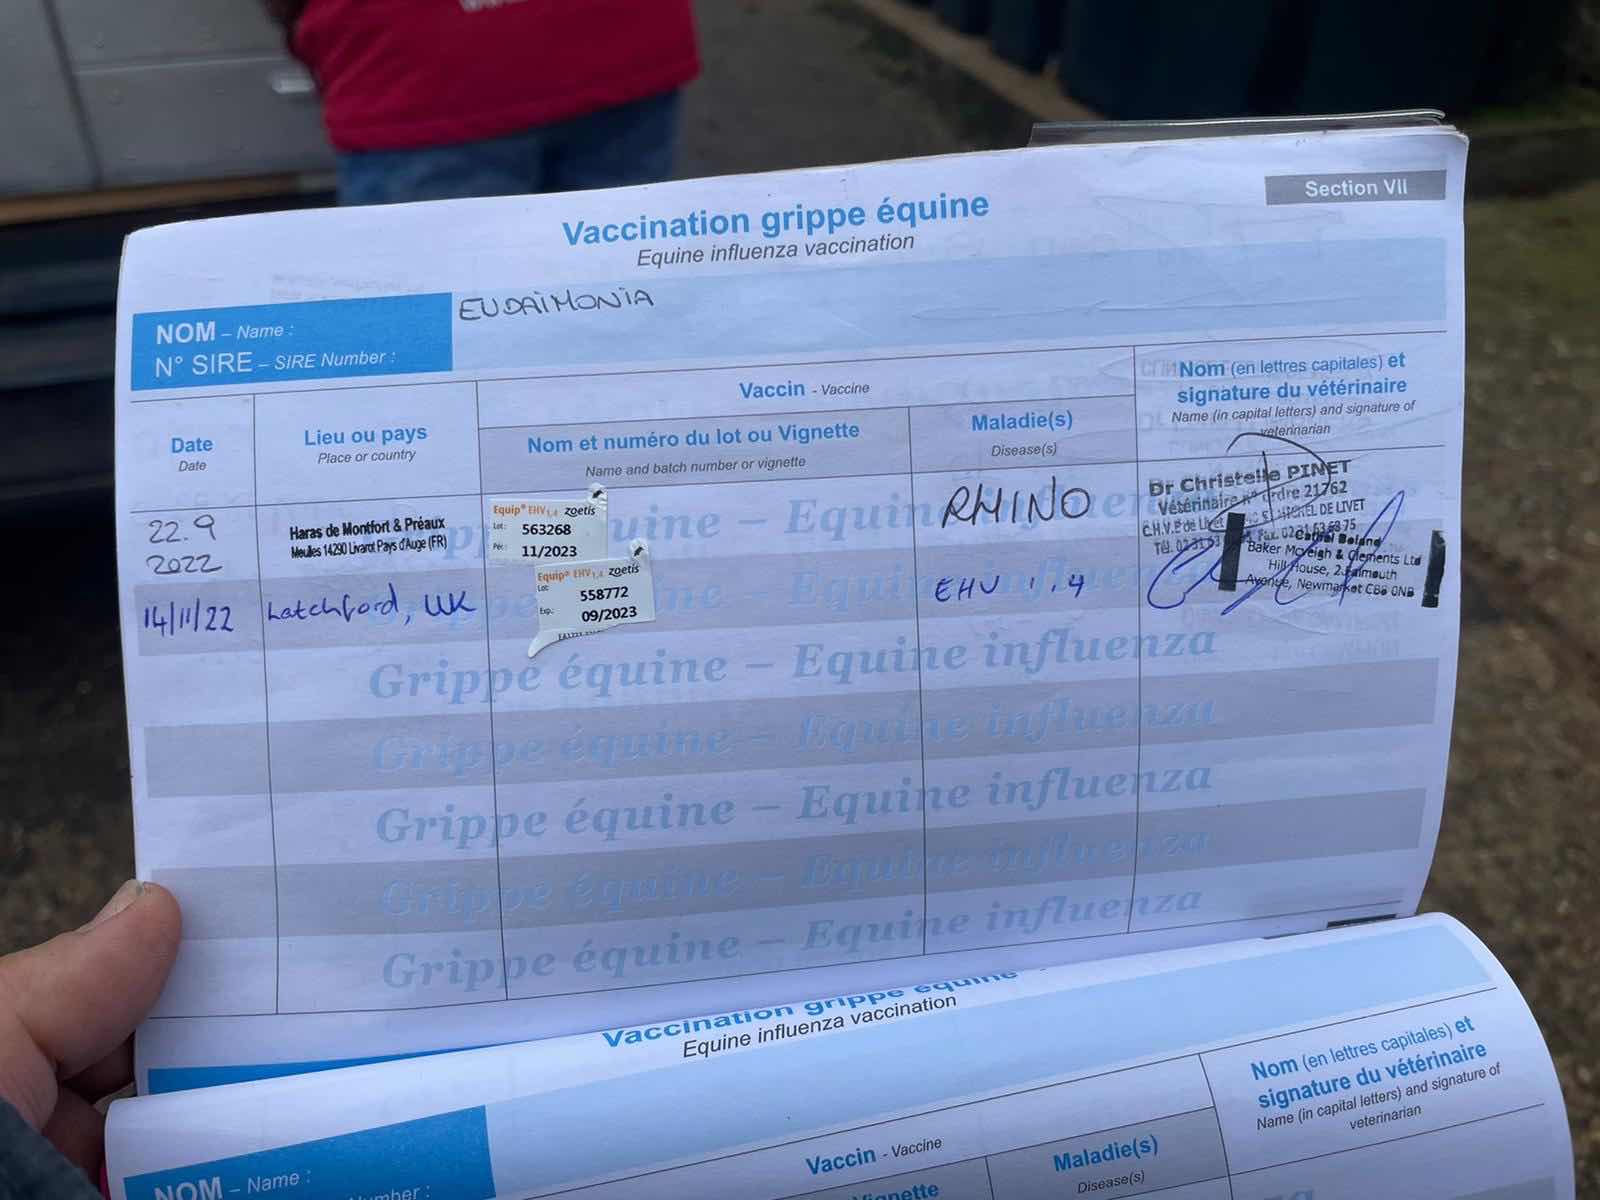 Section VII
Vaccination grippe équine
Equine influenza vaccination
NOM – Name :
EUDAIMONIA
N° SIRE – SIRE Number :
Date
Date
Lieu ou pays
Place or country
Vaccin - Vaccine
Nom et numéro du lot ou Vignette
Name and batch number or vignette
Maladie(s)
Disease(s)
Nom (en lettres capitales) et
signature du vétérinaire
Name (in capital letters) and signature of
veterinarian
22.9
2022
Haras de Montfort & Préaux
Meulles 14290 Livarot Pays d'Auge (FR)
Equip® EHV1,4 zoetis
Lot : 563268
Pér.: 11/2023
RHINO
Dr Christelle PINET
Vétérinaire n° ordre 21762
C.H.V.P de Livet ST MICHEL DE LIVET
Tél. 02 31 63 Fax. 02 31 63 68 75
14/11/22
Latchford, UK
Equip® EHV1,4 zoetis
Lot: 558772
Exp.: 09/2023
EHV 1.4
Cathal Boland
Baker McVeigh & Clements Ltd
Hill House, 2 Falmouth
Avenue, Newmarket CB8 0NB
Grippe équine – Equine influenza
Grippe équine – Equine influenza
Grippe équine – Equine influenza
Grippe équine – Equine influenza
Grippe équine – Equine influenza
Vaccination grippe équine
Equine influenza vaccination
NOM – Name :
Number :
Vaccin - Vaccine
Vignette
Maladie(s)
Disease(s)
Nom (en lettres capitales) et
signature du vétérinaire
Name (in capital letters) and signature of
veterinarian